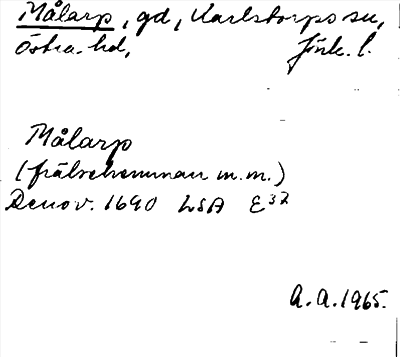 Målarp, gd, Karlstorps sn,
Östra hd, Jönk. l.
Målarp
(frälsehemman m.m.)
Renov. 1690 LSA E³²
A.A. 1965.